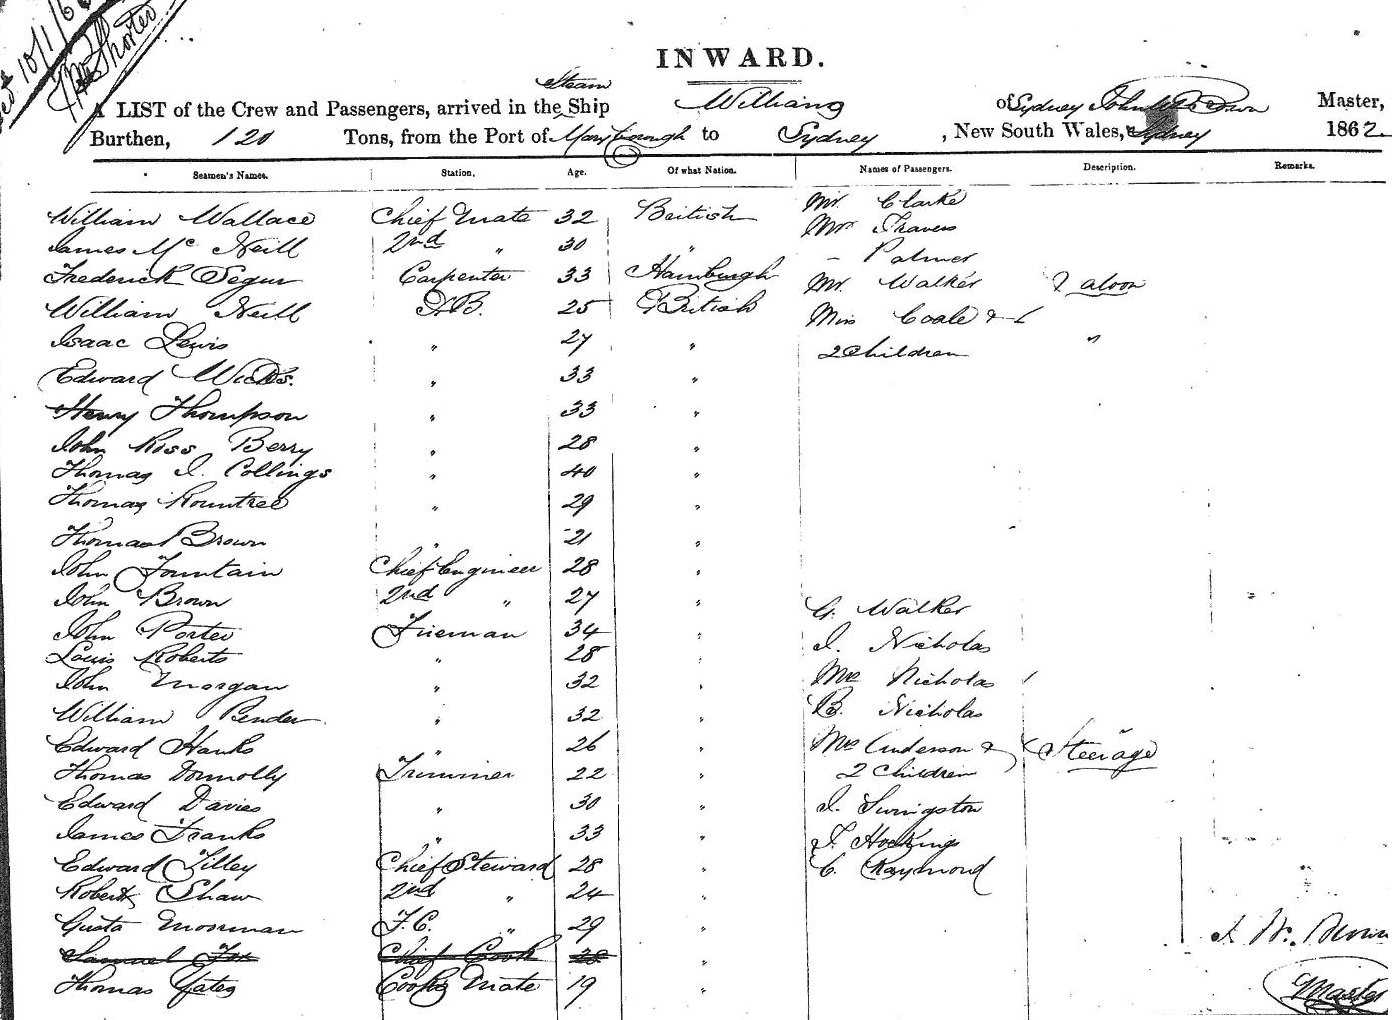 10/1/6
Shorter
INWARD.
Steam
A LIST of the Crew and Passengers, arrived in the Ship Williams of Sydney John Brown Master,
Burthen, 120 Tons, from the Port of Maryborough to Sydney, New South Wales, Sydney 1862
Seamen's Names. Station, Age. Of what Nation. Names of Passengers. Description. Remarks.
William Wallace Chief Mate 32 British Mr. Clarke
James McNeill 2nd " 30 " Mr Travers
- Palmer
Frederick Segur Carpenter 33 Hamburgh Mr. Walker Saloon
William Neill A.B. 25 British Miss Coale &
Isaac Lewis " 27 " 2 Children "
Edward Wicks. " 33 "
Henry Thompson " 33 "
John Ross Berry " 28 "
Thomas J. Collings " 40 "
Thomas Rountree " 29 "
Thomas Brown " 21 "
John Fountain Chief Engineer 28 "
John Brown 2nd " 27 " G. Walker
John Porter Fireman 34 " J. Nicholas
Louis Roberts " 28 "
John Morgan " 32 " Mrs Nicholas
William Pender " 32 " B. Nicholas
Edward Hanks " 26 " Mrs Anderson & Steerage
Thomas Donnolly Trimmer 22 " 2 Children
Edward Davies " 30 " J. Livingston
James Franks " 33 " J. Hocking
Edward Tilley Chief Steward 28 " C. Raymond
Robert Shaw 2nd " 24 "
Gusta Mossman F.C. " 29 " J. W. Brown
Samuel Fox Chief Cook 28 "
Thomas Yates Cooks Mate 19 " Master